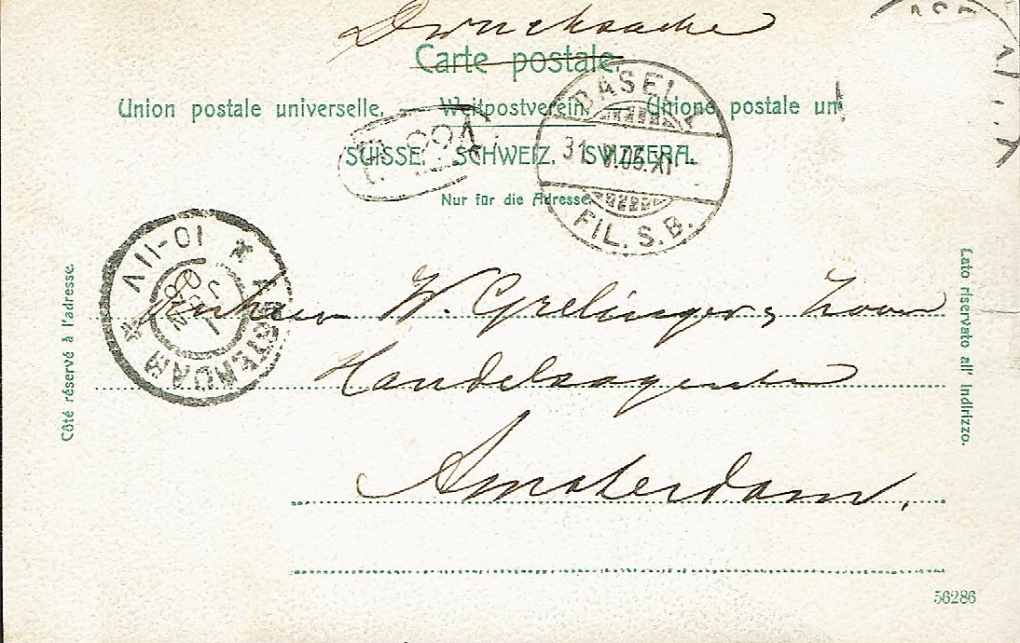 Drucksache
Carte postale.
Union postale universelle. — Weltpostverein. — Unione postale un
SUISSE. SCHWEIZ. SVIZZERA.
Nur für die Adresse.
BASEL 1
31. V.05.XI
FIL. S. B.
AMSTERDAM
10-11V
W. Grelinger, Zoon
Handelsagenten
Amsterdam.
Côté réservé à l'adresse.
Lato riservato all' indirizzo.
56286